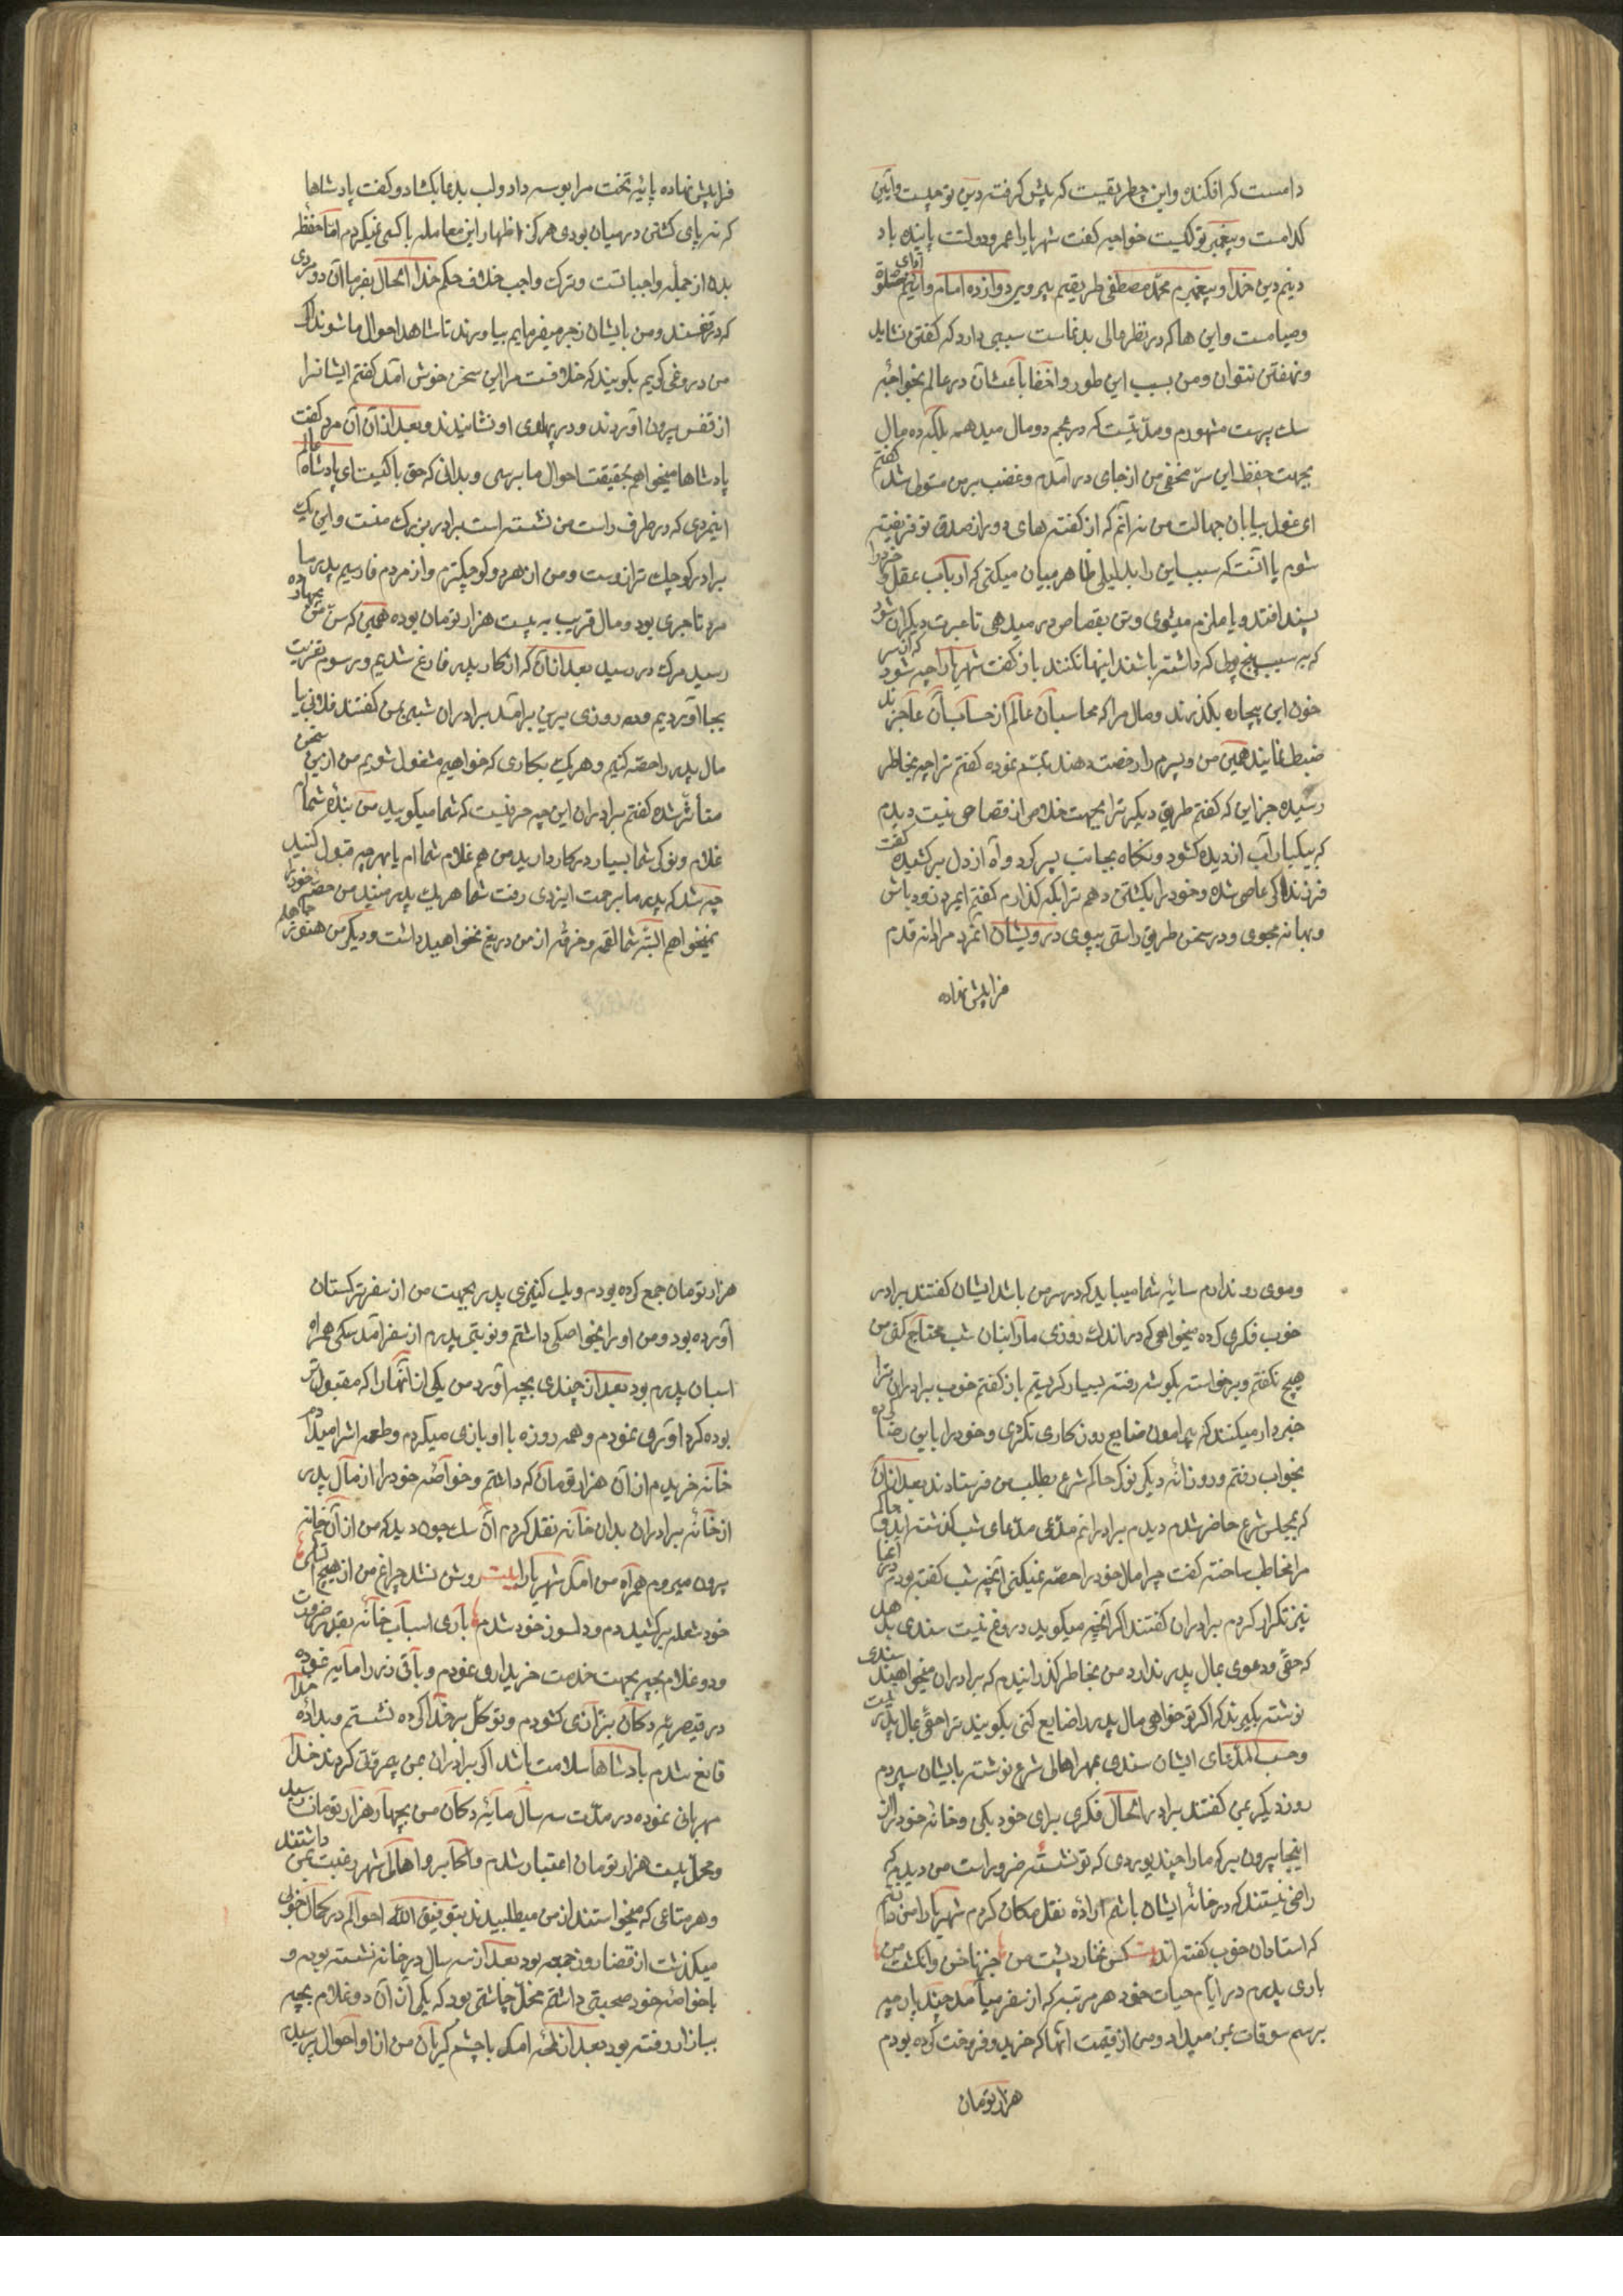 دامست که افکنده واین چطریقیست که پیش کرفته دین تو چیست وآیین
کدامست وپیغمبر تو کیست خواجه کفت شهریارا عمر ودولتت پاینده باد
دینم دین خدا و پیغمبرم محمد مصطفی طریقتم پیروی دوازده امام وآیینم صلوة
وصیامست واین ها که در نظر عالی بدنماست سببی دارد که کفتن نشاید
ونهفتن نتوان ومن بسبب این طور واخفا باعث آن در عالم بخواجه
سک پرست مشهورم ومدتیست که در عجم دو مال میدهم بلکه ده مال
بجهت حفظ این سر مخفی من از جای در آمدم وغضب بر من مستولی شد کفتم
ای غول بیابان جهالت من نه آنم که از کفته های دور از صدق تو فریفته
شوم یا آنست که سبب این را بدلیلی ظاهر بیان میکنی که ارباب عقل وخرد را
پسند افتد ویا ملزم میشوی وتن بقصاص در میدهی تا عبرت دیکران شود
که به سبب پنج پولی که داشته باشند اینها نکنند باز کفت شهریارا چه شود که از سر
خون این بیچاره بکذرند ومال مرا که محاسبان عالم از حساب آن عاجزند
ضبط نمایند همین من و پسرم را رخصت دهند تبسم نموده کفتم ترا چه بخاطر
رسیده جز این که کفتم طریق دیکر ترا بجهت خلاص از قصاص نیست دیدم
که بیکبار آب از دیده کشود ونکاه بجانب پسر کرد وآه از دل بر کشیده کفت
فرزند اکر عاصی شده وخود را بکشتن دهم ترا بکه کذارم کفتم ایمرد زود باش
وبهانه مجوی ودر سخن طریق راستی بپوی درویشان آنمرد مردانه قدم
فرا پیش نهاده
فرا پیش نهاده پایه تخت مرا بوسه داد ولب بدعا بکشاد وکفت پادشاها
که نه پای کشتن در میان بودی هرکز اظهار این معامله با کسی نمیکردم اما حفظ
بدن از جمله واجباتست وترک واجب خلاف حکم خدا الحال بفرما آن دو مردی
که در قفسند ومن بایشان زجر میفرمایم بیاورند تا شاهد احوال ما شوند اکر
من دروغی کویم بکویند که خلافست مرا این سخن خوش آمد کفتم ایشانرا
از قفس بیرون آوردند ودر پهلوی او نشانیدند وبعد از آن آن مرد کفت
پادشاها میخواهم بحقیقت احوال ما برسی وبدانی که حق با کیست ای پادشاه عالم
اینمردی که در طرف راست من نشسته است برادر بزرک منست واین یک
برادر کوچک تر از وست ومن از هر دو کوچکترم واز مردم فارسیم پدر ما
مرد تاجری بود ومال قریب به بیست هزار تومان بوده همین که سن من بچهارده
رسید مرک در رسید بعد از آن که از کار پدر فارغ شدیم ورسوم تعزیت
بجا آوردیم وده روزی برین برآمد برادران شبی بمن کفتند فلانی بیا
مال پدر را حصه کنیم وهر یک بکاری که خواهیم مشغول شویم من ازین سخن
متأثر شده کفتم برادران این چه حرفیست که شما میکویید من بنده شمایم
غلام ونوکر شما بسیار در کار دارید من هم غلام شما ام یا بهر چه قبول کنید
چه شد که پدر ما برحمت ایزدی رفت شما هر یک پدر منید من حصه خود را
نمیخواهم البته شما لقمه وخرقه از من دریغ نخواهید داشت ودیکر من هنوز جاهلم
وموی رو ندارم سایه شما میباید که در سر من باشد ایشان کفتند برادر
خوب فکری کرده میخواهی که در اندک روزی ما را بنان شب محتاج کنی من
هیچ نکفتم وبرخواسته بکوشه رفته بسیار کریستم باز کفتم خوب برادران ترا
خبردار میکنند که پیرامون ضایع روزکاری نکردی وخود را باین رضا کرده
بخواب رفتم وروزانه دیکر نوکر حاکم شرع بطلب من فرستادند بعد از آن
که بمجلس شرع حاضر شدم دیدم برادرانم مدعی مدعای شب کذشته اند وحاکم
مرا مخاطب ساخته کفت چرا مال خود را حصه نمیکنی آنچه شب کفته بودم در آنجا
نیز تکرار کردم برادران کفتند اکر آنچه میکوید دروغ نیست سندی بدهد
که حقی ودعوی بمال پدر ندارد من بخاطر کذرانیدم که برادران میخواهند سندی
نوشته بکیرند که اکر تو خواهی مال پدر را ضایع کنی بکویند ترا حق بمال پدر نیست
وحسب المدعای ایشان سندی بمهر اهالی شرع نوشته بایشان سپردم
روز دیکر بمن کفتند برادر الحال فکری برای خود بکن وخانه خود را از
اینجا بیرون بر که ما را چند بوردی که تو نشسته ضرور است من دیدم که
راضی نیستند که در خانه ایشان باشم اراده نقل مکان کردم شهریارا من دانم
که استادان خوب کفته اند بیت کس نخارد پشت من جز ناخن وانکشت من
باری پدرم در ایام حیات خود هر مرتبه که از سفر میآمد چند پارچه
برسم سوقات بمن میداد ومن از قیمت آنها که خرید وفروخت کرده بودم
هزار تومان
هزار تومان جمع کرده بودم ویک کنیزی پدر بجهت من از سفر ترکستان
آورده بود ومن او را بخواصکی داشتم ونوبتی پدرم از سفر آمد سکی همراه
اسبان پدرم بود بعد از چندی بچه آورد من یکی از آنها را که مقبول تر
بوده کرد آوری نمودم وهمه روزه با او بازی میکردم وطعمه اش را میدادم
خانه خریدم از آن هزار تومان که داشتم وخواصه خود را از مال پدر
از خانه برادران بدان خانه نقل کردم آن سک چون دید که من از آن خانه
بیرون میروم همراه من آمد شهریارا بیت روشن نشد چراغ من از هیچ آتشی
خود شعله بر کشیدم ودلسوز خود شدم باری اسباب خانه بقدر ضرورت
ودو غلام بچه بجهت خدمت خریداری نمودم وباقی زر را مایه نموده
در قیصریه دکان بزازی کشودم وتوکل بر خدا کرده نشستم وبداده خدا
قانع شدم پادشاها سلامت باشد اکر برادران بمن بیمروتی کردند خدا
مهربانی نموده در مدت سه سال مایه دکان من بچهار هزار تومان رسید
ومحل بیست هزار تومان اعتبار شدم واکابر واهالی شهر رغبت بمن داشتند
وهر متاعی که میخواستند از من میطلبیدند بتوفیق الله احوالم در کمال خوبی
میکذشت از قضا روز جمعه بود بعد از سه سال در خانه نشسته بودم و
باخواصه خود صحبتی داشتم محل چاشتی بود که یکی از آن دو غلام بچه
ببازار رفته بود بعد از لمحه آمد با چشم کریان من از او احوال پرسیدم